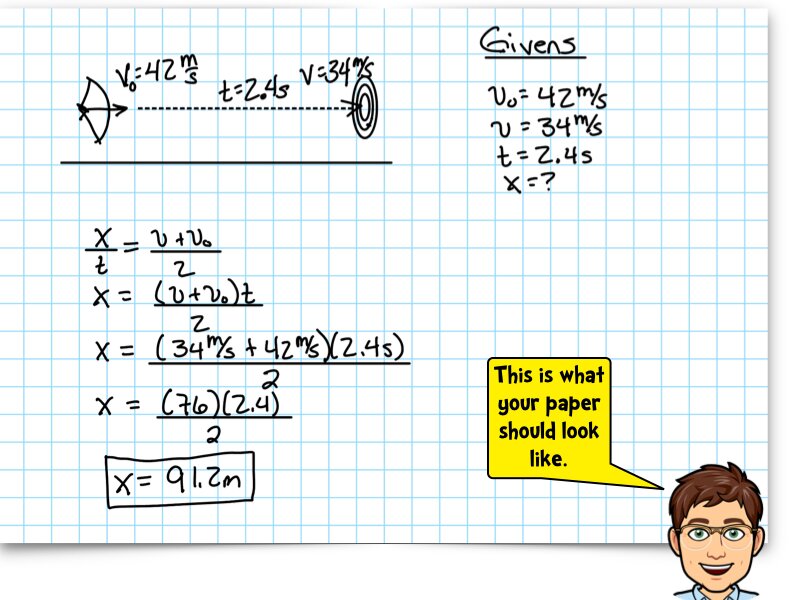 v₀=42 m/s
t=2.4s
v=34 m/s
Givens
v₀ = 42 m/s
v = 34 m/s
t = 2.4s
x = ?
x/t = (v + v₀)/2
x = ((v + v₀)t)/2
x = ((34 m/s + 42 m/s)(2.4s))/2
x = ((76)(2.4))/2
x = 91.2m
This is what
your paper
should look
like.